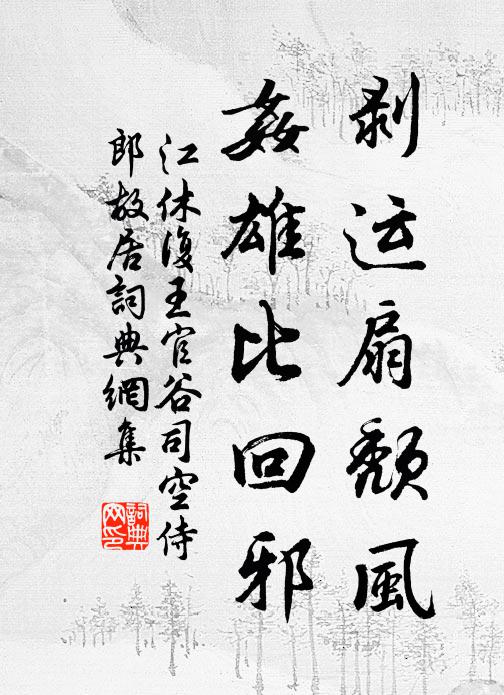 剥运扇颓風
姦雄比回邪
江休復王官谷司空侍
郎故居詞典網集
詞典
网印